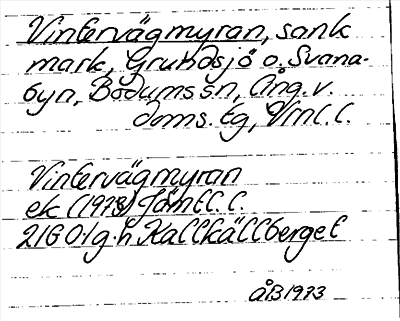 Vintervägmyran, sank
mark, Grundsjö o. Svana-
byn, Bodums sn, Ång. v.
doms. tg, Vrnl. l.
Vintervägmyran
ek (1973) Jämtl. l.
21G 0-1g-h Kallkällberget
ÅB 1973